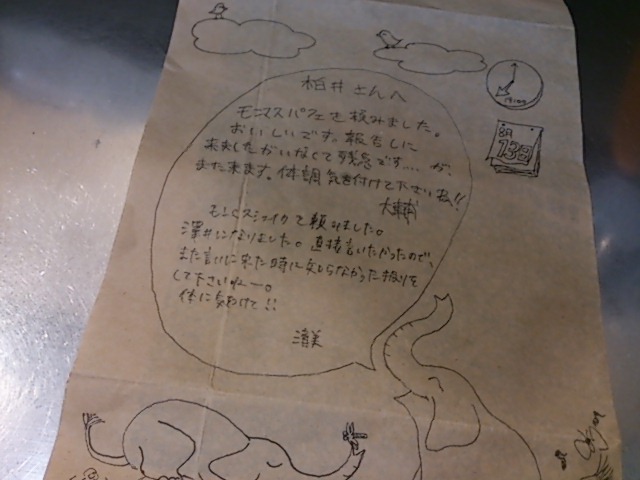 柏井さんへ
モンマスパフェを頼みました。
おいしいです。報告しに
来ましたがいなくて残念です.... が、
また来ます。体調気を付けて下さいね!!
大輔
頼みました。
澤井になりました。直接言いたかったので、
また言いに来た時に知らなかった振りを
して下さいねー。
体に気をつけて!!
清美
19:00
8月
13日